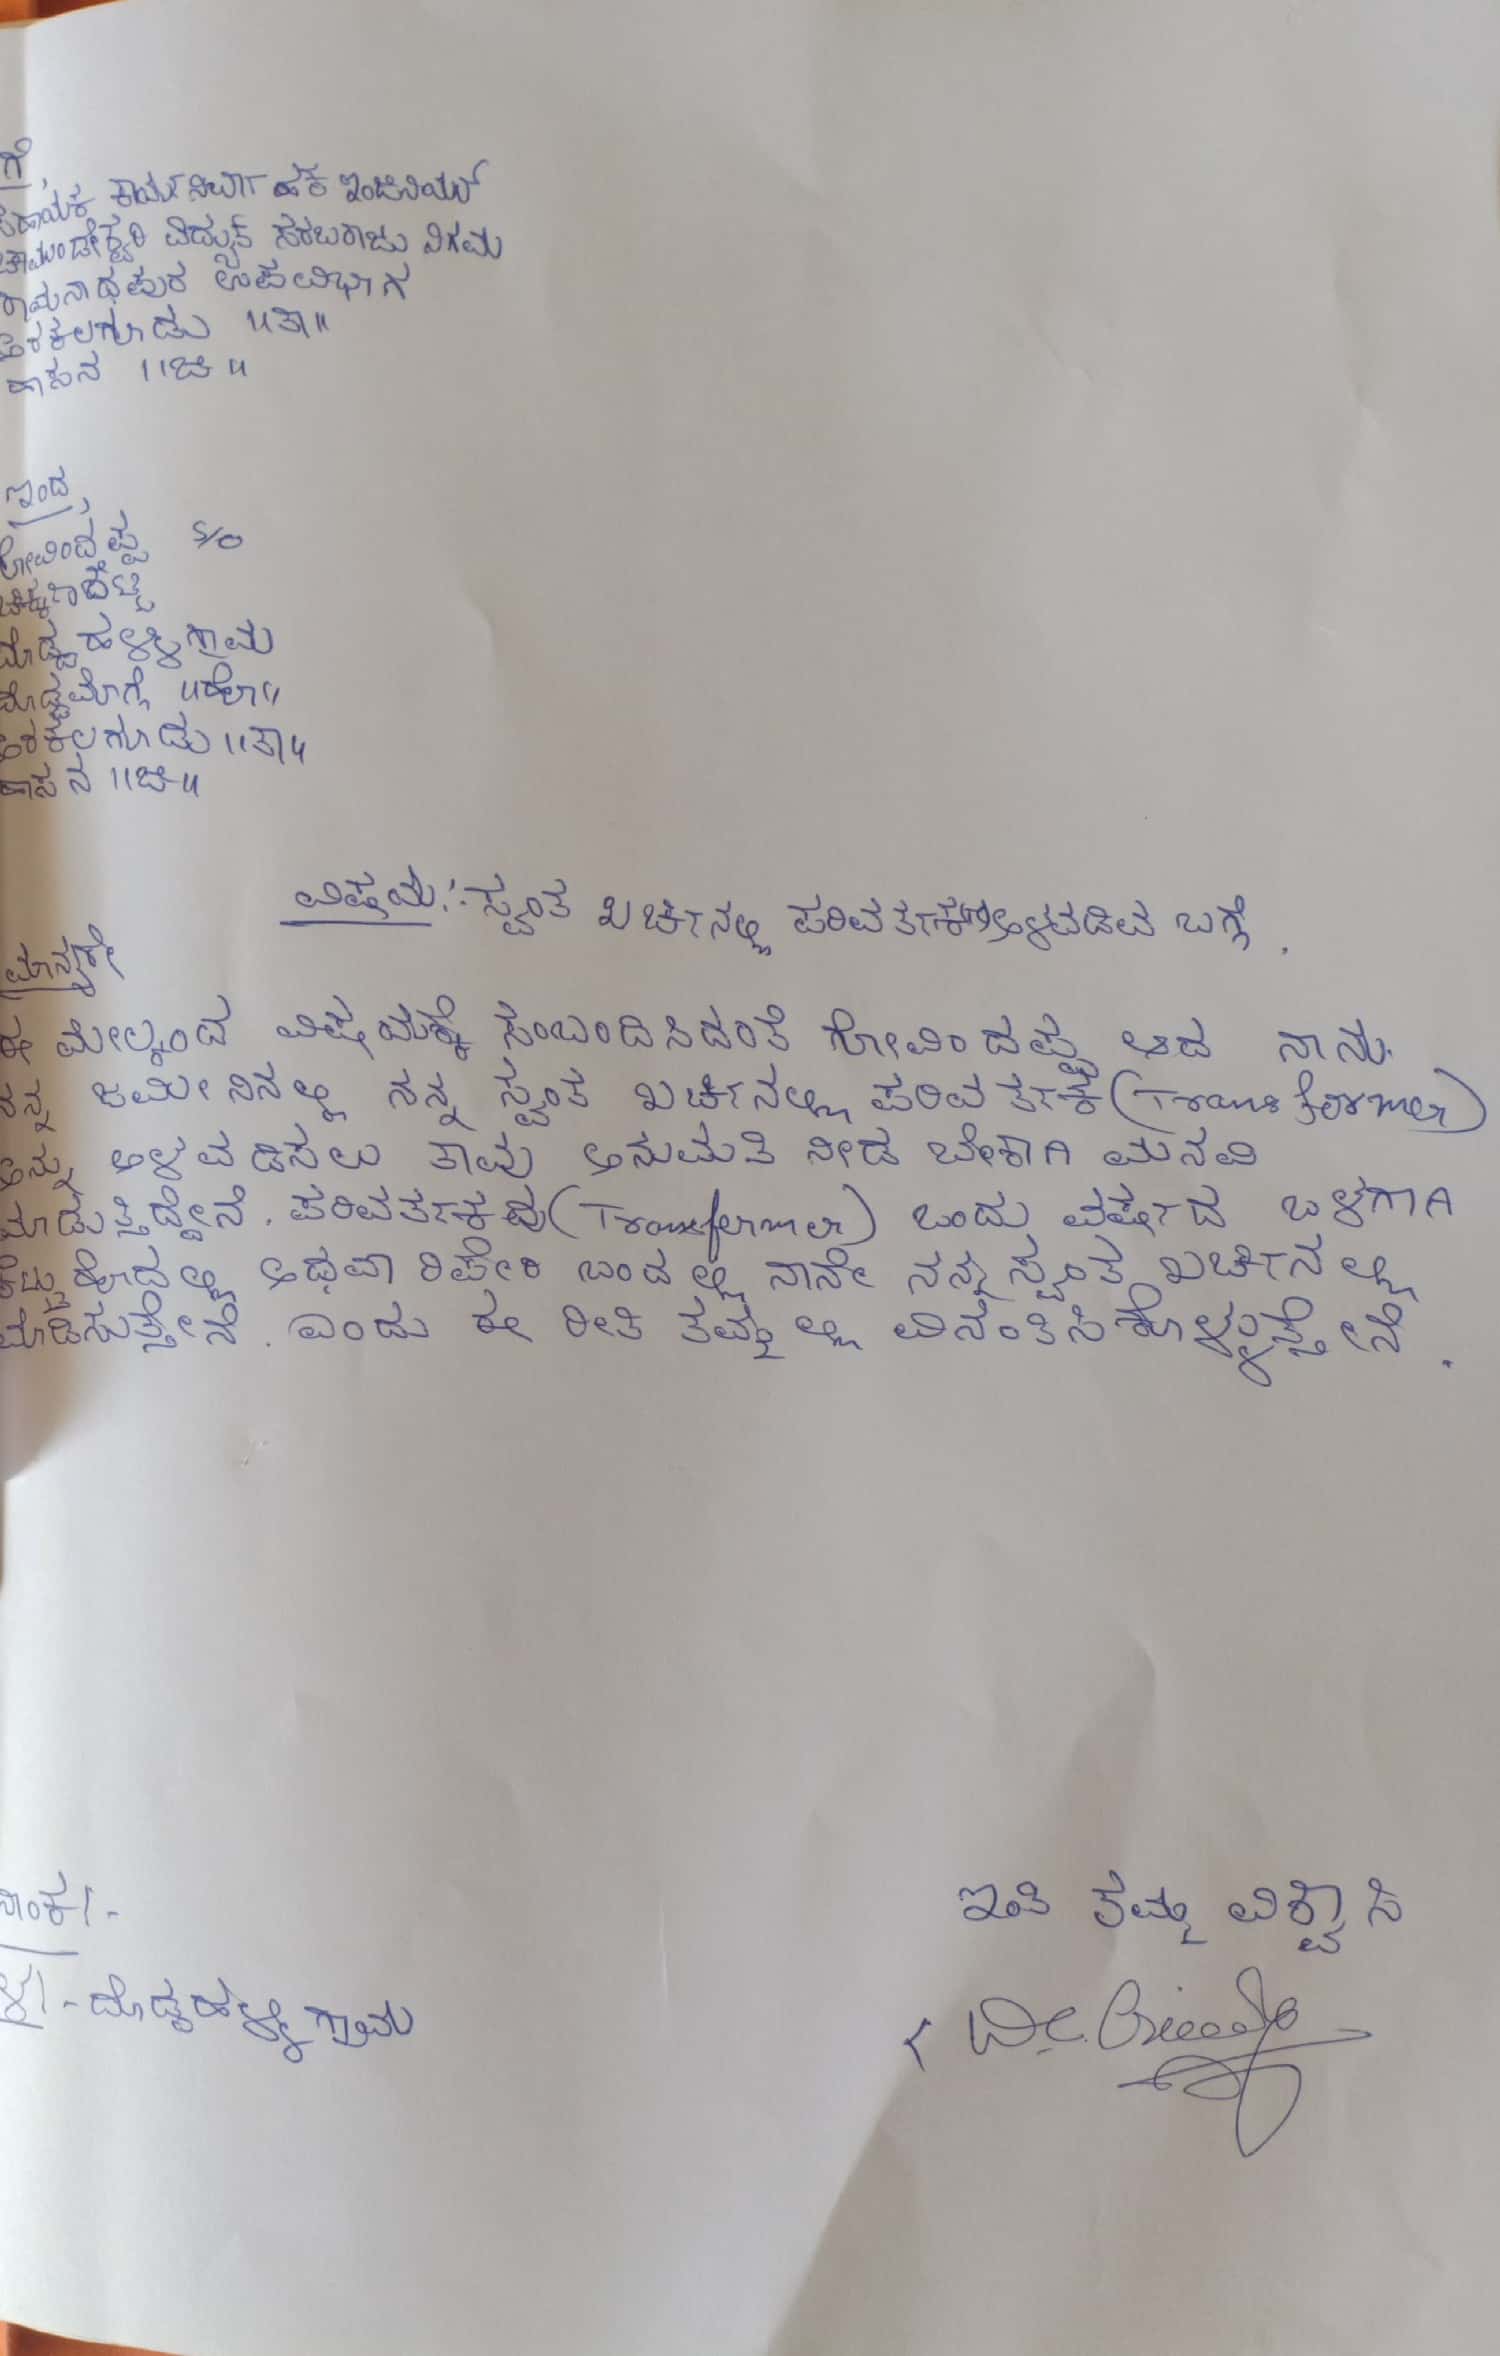 ಗೆ,
ಸಹಾಯಕ ಕಾರ್ಯನಿರ್ವಾಹಕ ಇಂಜಿನಿಯರ್
ಚಾಮುಂಡೇಶ್ವರಿ ವಿದ್ಯುತ್ ಸರಬರಾಜು ನಿಗಮ
ರಾಮನಾಥಪುರ ಉಪವಿಭಾಗ
ಅರಕಲಗೂಡು "ತಾ"
ಹಾಸನ "ಜಿ"
ಇಂದ,
ಗೋವಿಂದಪ್ಪ S/o
ದೊಡ್ಡಹಳ್ಳಿ ಗ್ರಾಮ
ದೊಡ್ಡಮಗ್ಗೆ "ಹೋ"
ಅರಕಲಗೂಡು "ತಾ"
ಹಾಸನ "ಜಿ"
ವಿಷಯ:- ಸ್ವಂತ ಖರ್ಚಿನಲ್ಲಿ ಪರಿವರ್ತಕ ಅಳವಡಿವ ಬಗ್ಗೆ.
ಮಾನ್ಯರೇ
ಈ ಮೇಲ್ಕಂಡ ವಿಷಯಕ್ಕೆ ಸಂಬಂದಿಸಿದಂತೆ ಗೋವಿಂದಪ್ಪ ಆದ ನಾನು
ನನ್ನ ಜಮೀನಿನಲ್ಲಿ ನನ್ನ ಸ್ವಂತ ಖರ್ಚಿನಲ್ಲಿ ಪರಿವರ್ತಕ (Transformer)
ಅನ್ನು ಅಳವಡಿಸಲು ತಾವು ಅನುಮತಿ ನೀಡ ಬೇಕಾಗಿ ಮನವಿ
ಮಾಡುತ್ತಿದ್ದೇನೆ. ಪರಿವರ್ತಕವು (Transformer) ಒಂದು ವರ್ಷದ ಒಳಗಾಗಿ
ಕೆಟ್ಟುಹೋದಲ್ಲಿ ಅಥವಾ ರಿಪೇರಿ ಬಂದಲ್ಲಿ ನಾನೇ ನನ್ನ ಸ್ವಂತ ಖರ್ಚಿನಲ್ಲಿ
ಮಾಡಿಸುತ್ತೇನೆ. ಎಂದು ಈ ರೀತಿ ತಮ್ಮಲ್ಲಿ ವಿನಂತಿಸಿಕೊಳ್ಳುತ್ತೇನೆ.
ನಾಂಕ/-
ಇಂತಿ ತಮ್ಮ ವಿಶ್ವಾಸಿ
ಳ/- ದೊಡ್ಡಹಳ್ಳಿ ಗ್ರಾಮ